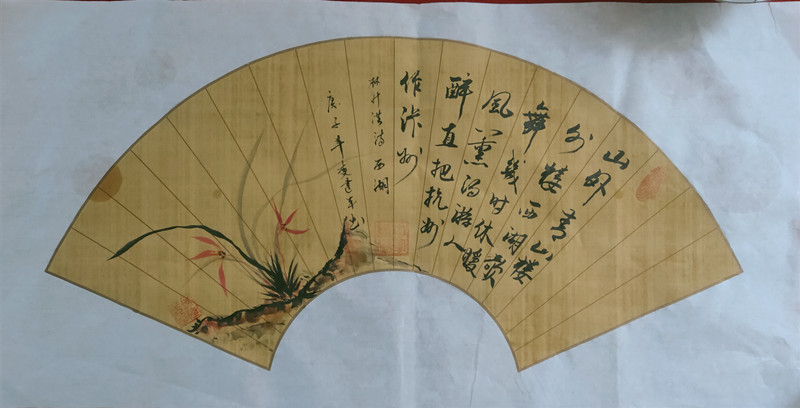 山外青山楼
外楼西湖歌
舞幾时休暖
风熏得游人
醉直把杭州
作汴州
林升诗西湖
庚子年建书